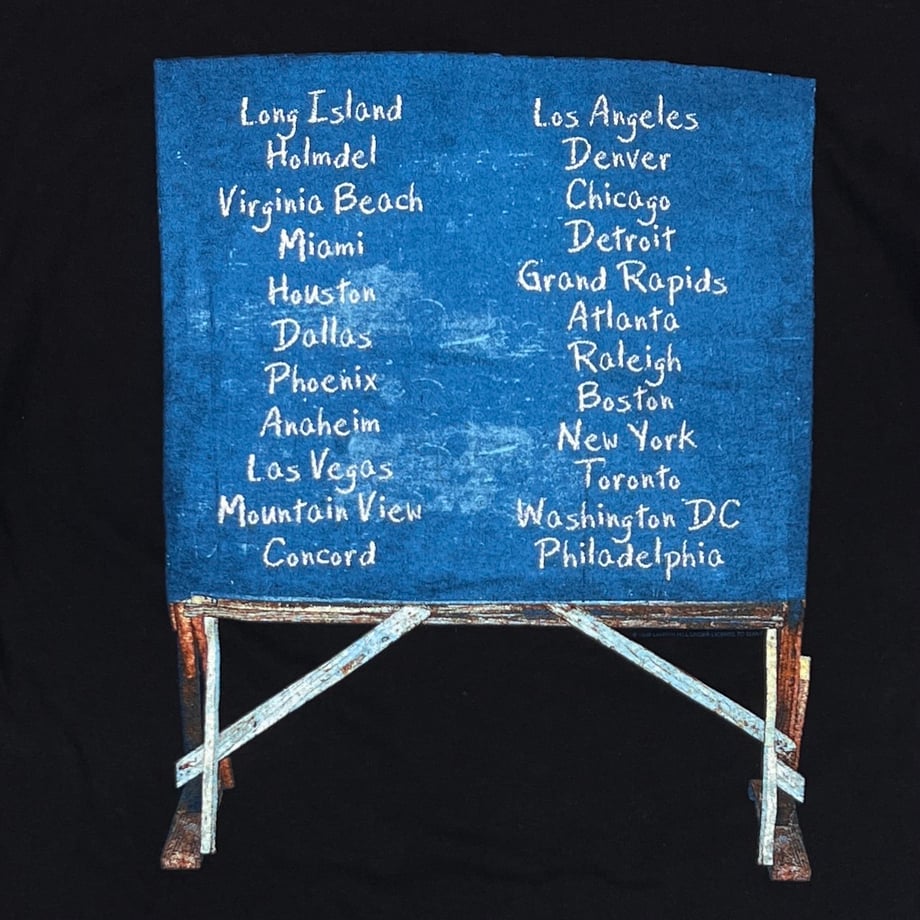 Long Island
Holmdel
Virginia Beach
Miami
Houston
Dallas
Phoenix
Anaheim
Las Vegas
Mountain View
Concord
Los Angeles
Denver
Chicago
Detroit
Grand Rapids
Atlanta
Raleigh
Boston
New York
Toronto
Washington DC
Philadelphia